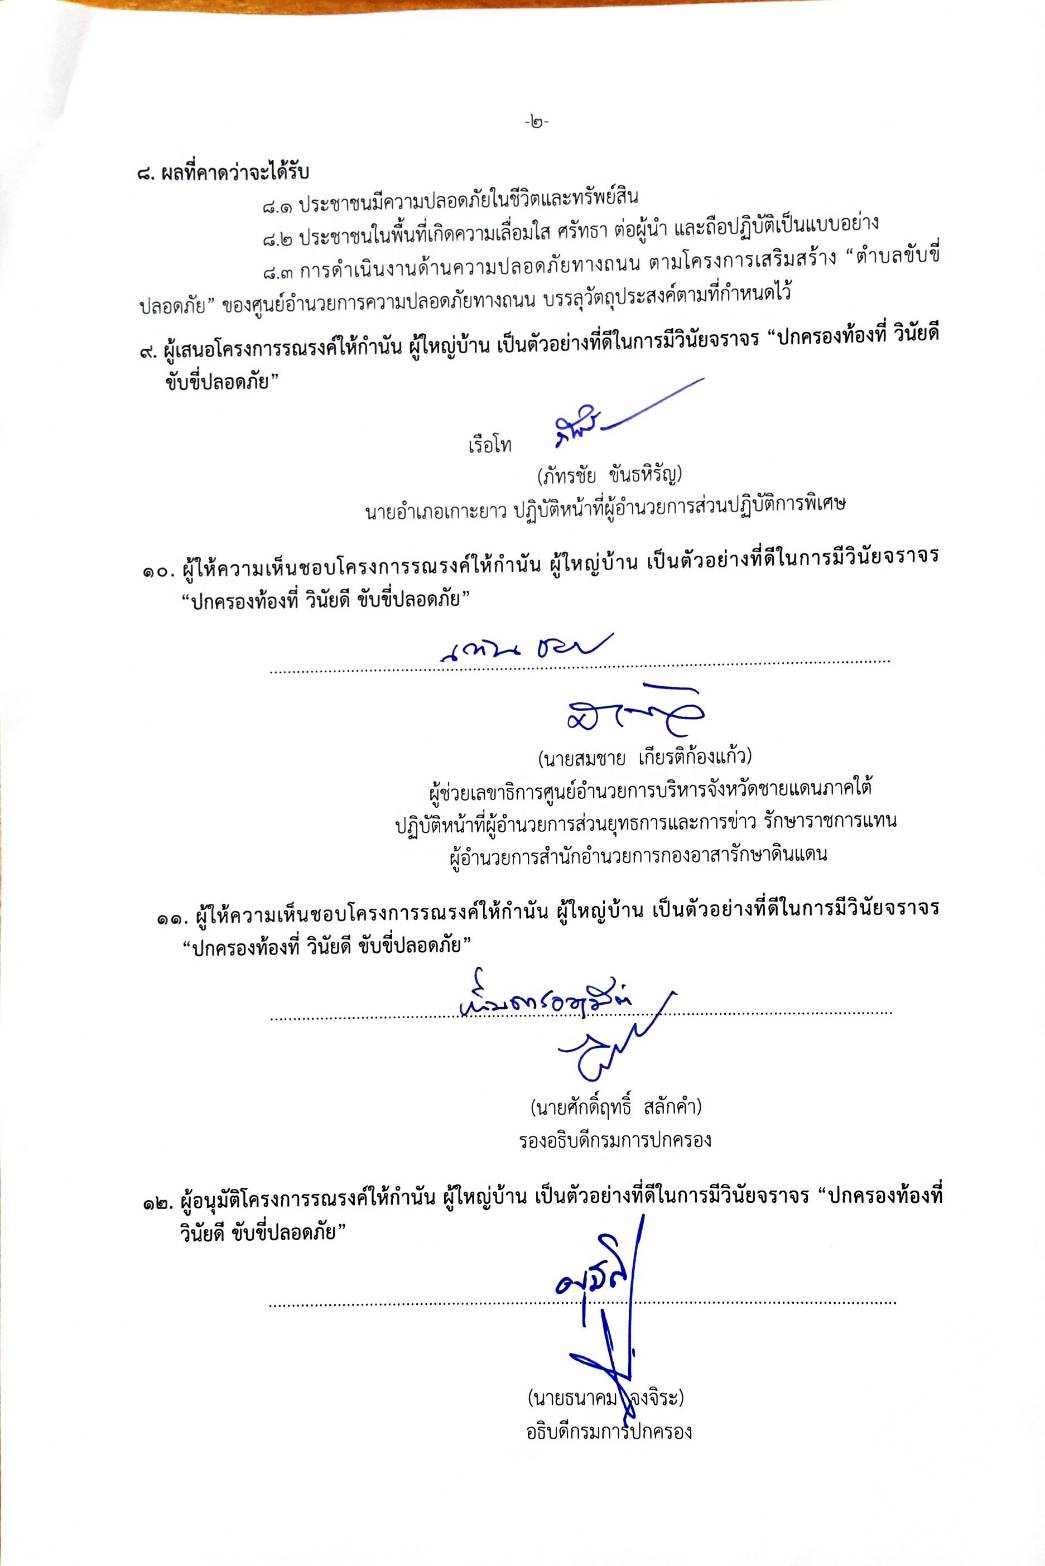 -๒-
๘. ผลที่คาดว่าจะได้รับ
๘.๑ ประชาชนมีความปลอดภัยในชีวิตและทรัพย์สิน
๘.๒ ประชาชนในพื้นที่เกิดความเลื่อมใส ศรัทธา ต่อผู้นำ และถือปฏิบัติเป็นแบบอย่าง
๘.๓ การดำเนินงานด้านความปลอดภัยทางถนน ตามโครงการเสริมสร้าง “ตำบลขับขี่
ปลอดภัย” ของศูนย์อำนวยการความปลอดภัยทางถนน บรรลุวัตถุประสงค์ตามที่กำหนดไว้
๙. ผู้เสนอโครงการรณรงค์ให้กำนัน ผู้ใหญ่บ้าน เป็นตัวอย่างที่ดีในการมีวินัยจราจร “ปกครองท้องที่ วินัยดี
ขับขี่ปลอดภัย”
เรือโท
(ภัทรชัย ขันธหิรัญ)
นายอำเภอเกาะยาว ปฏิบัติหน้าที่ผู้อำนวยการส่วนปฏิบัติการพิเศษ
๑๐. ผู้ให้ความเห็นชอบโครงการรณรงค์ให้กำนัน ผู้ใหญ่บ้าน เป็นตัวอย่างที่ดีในการมีวินัยจราจร
“ปกครองท้องที่ วินัยดี ขับขี่ปลอดภัย”
เห็นชอบ
(นายสมชาย เกียรติก้องแก้ว)
ผู้ช่วยเลขาธิการศูนย์อำนวยการบริหารจังหวัดชายแดนภาคใต้
ปฏิบัติหน้าที่ผู้อำนวยการส่วนยุทธการและการข่าว รักษาราชการแทน
ผู้อำนวยการสำนักอำนวยการกองอาสารักษาดินแดน
๑๑. ผู้ให้ความเห็นชอบโครงการรณรงค์ให้กำนัน ผู้ใหญ่บ้าน เป็นตัวอย่างที่ดีในการมีวินัยจราจร
“ปกครองท้องที่ วินัยดี ขับขี่ปลอดภัย”
เห็นควรอนุมัติ
(นายศักดิ์ฤทธิ์ สลักคำ)
รองอธิบดีกรมการปกครอง
๑๒. ผู้อนุมัติโครงการรณรงค์ให้กำนัน ผู้ใหญ่บ้าน เป็นตัวอย่างที่ดีในการมีวินัยจราจร “ปกครองท้องที่
วินัยดี ขับขี่ปลอดภัย”
อนุมัติ
(นายธนาคม จงจิระ)
อธิบดีกรมการปกครอง